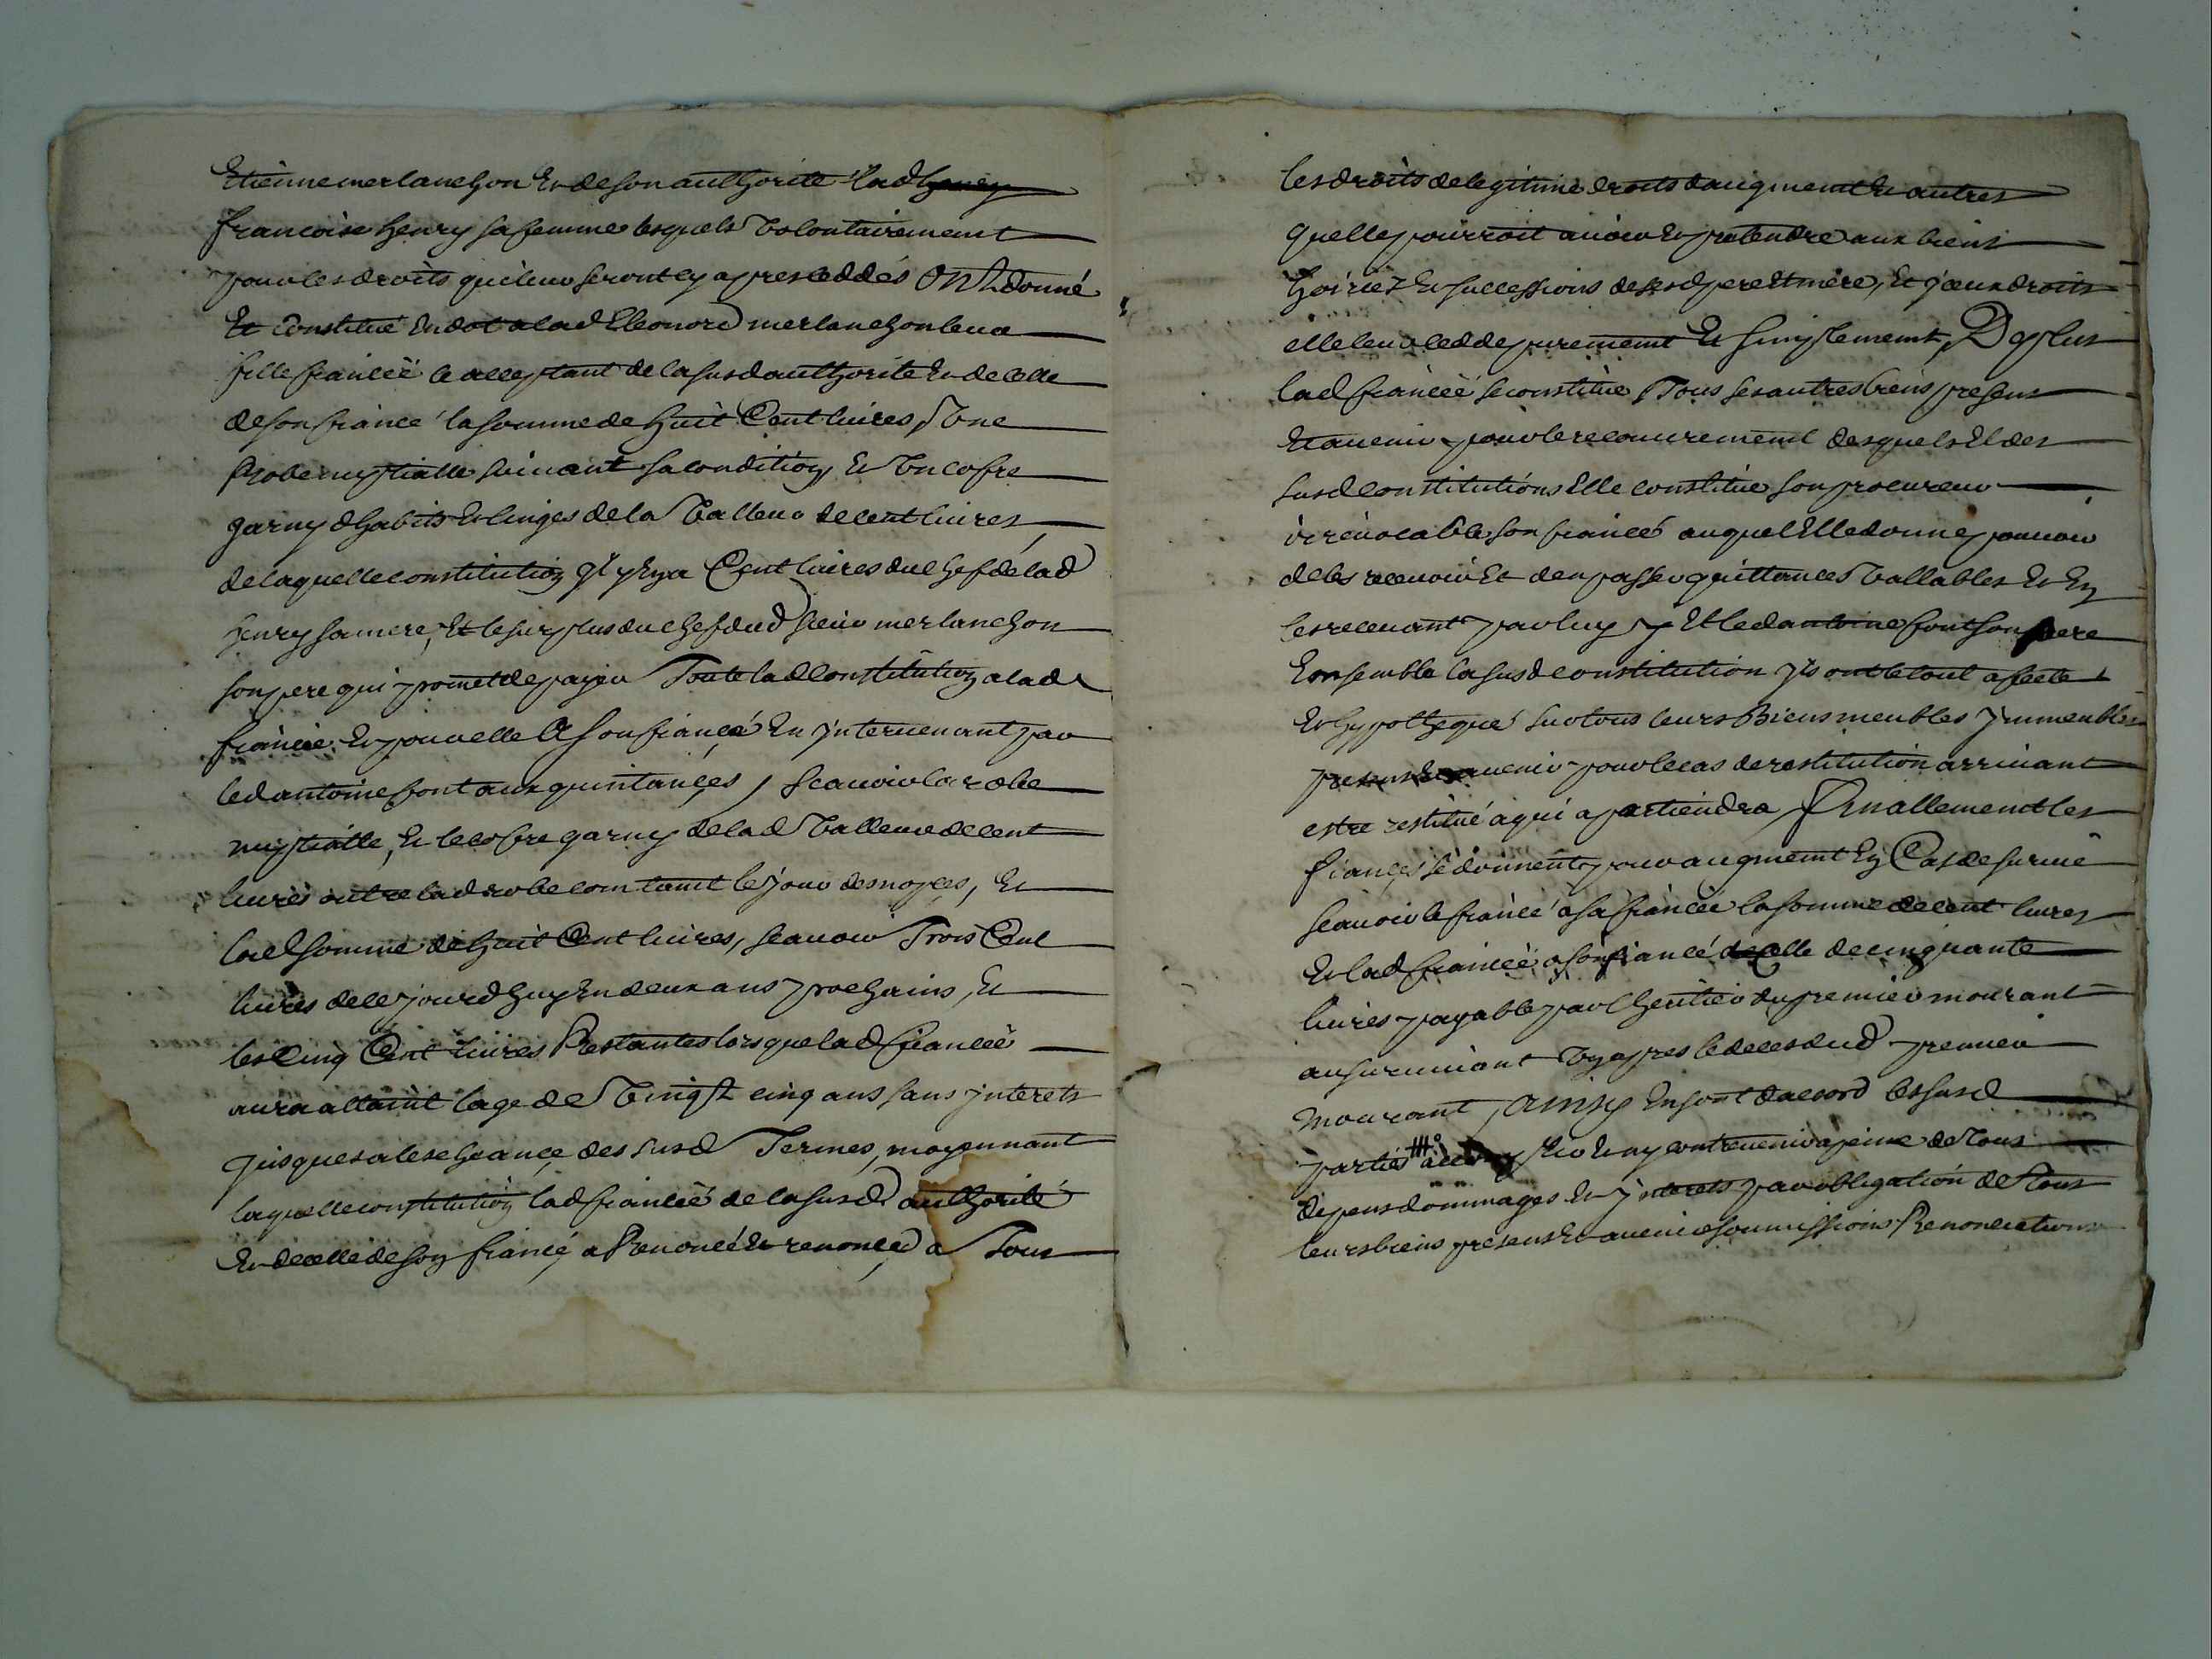 Etienne merlanchon Et de son authorité lad henry
francoise henry sa femme lesquels volontairement
pour les droits qui leur seront cy apres ceddés Ont donné
Et Constitué En dot a lad Eleonord merlanchon leur
fille fiancéë ce acceptant de la susd authorité Et de celle
de son fiancé la somme de huit Cent livres, Une
Robe nuptialle suivant sa condition Et Un cofre
garny dhabits Et linges de la Valleur de cent livres
de laquelle constitution yl y En a Cent livres du chef de lad
henry sa mere, Et le surplus du chef dud sieur merlanchon
son pere qui promet de payer Toute lad Constitution a lad
fiancée Et pour elle A son fiancé En yntervenant par
led antoine font aux quittances, scavoir la robe
nuptialle, Et le cofre garny de lad Valleur de cent
livres outre lad robe comtant le jour des nopces, Et
lad somme de huit Cent livres, scavoir Trois Cent
livres de ce jourdhuy En deux ans prochains, Et
les Cinq Cent livres Restantes lorsque lad fiancéë
aura attaint lage de Vingt cinq ans sans ynterets
jusques a lescheance des susd Termes, moyennant
laquelle constitution lad fiancéë de la susd authorité
Et de celle de son fiancé a Renoncé Et renonce a Tous
les droits de legitime droits daugment Et autres
quelle pourroit avoir Et pretendre aux biens
hoiries Et successions de sesd pere Et mère, Et yceux droits
elle leur cedde purement Et simplement, De plus
lad fiancéë se constitue Tous ses autres biens presens
Et avenir pour le recouvrement desquels Et des
susd Constitutions Elle constitue son procureur
irrévocable son fiancé auquel Elle donne pouvoir
de les recevoir Et den passer quittances Vallables Et En
les recevant par luy Et led antoine font son pere
Ensemble la susd constitution yls ont le tout afecté
Et hypothequé sur tous leurs Biens meubles ymmeubles
presens Et avenir pour le cas de restitution arrivant
estre restitué a qui apartiendra, Finallement les
fiancés se donnent pour augment En Cas de survie
scavoir le fiancé a sa fiancée la somme de cent livres
Et lad fiancéë a son fiancé celle de cinquante
livres payable par lheritier du premier mourant
au survivant Un an apres le deces dud premier
mourant, Ainsy En sont daccord les susd
parties Et ny contrevenir a peine de Tous
depens dommages Et ynterets par obligation de Tous
leurs biens presens Et avenir soumissions Renonciations